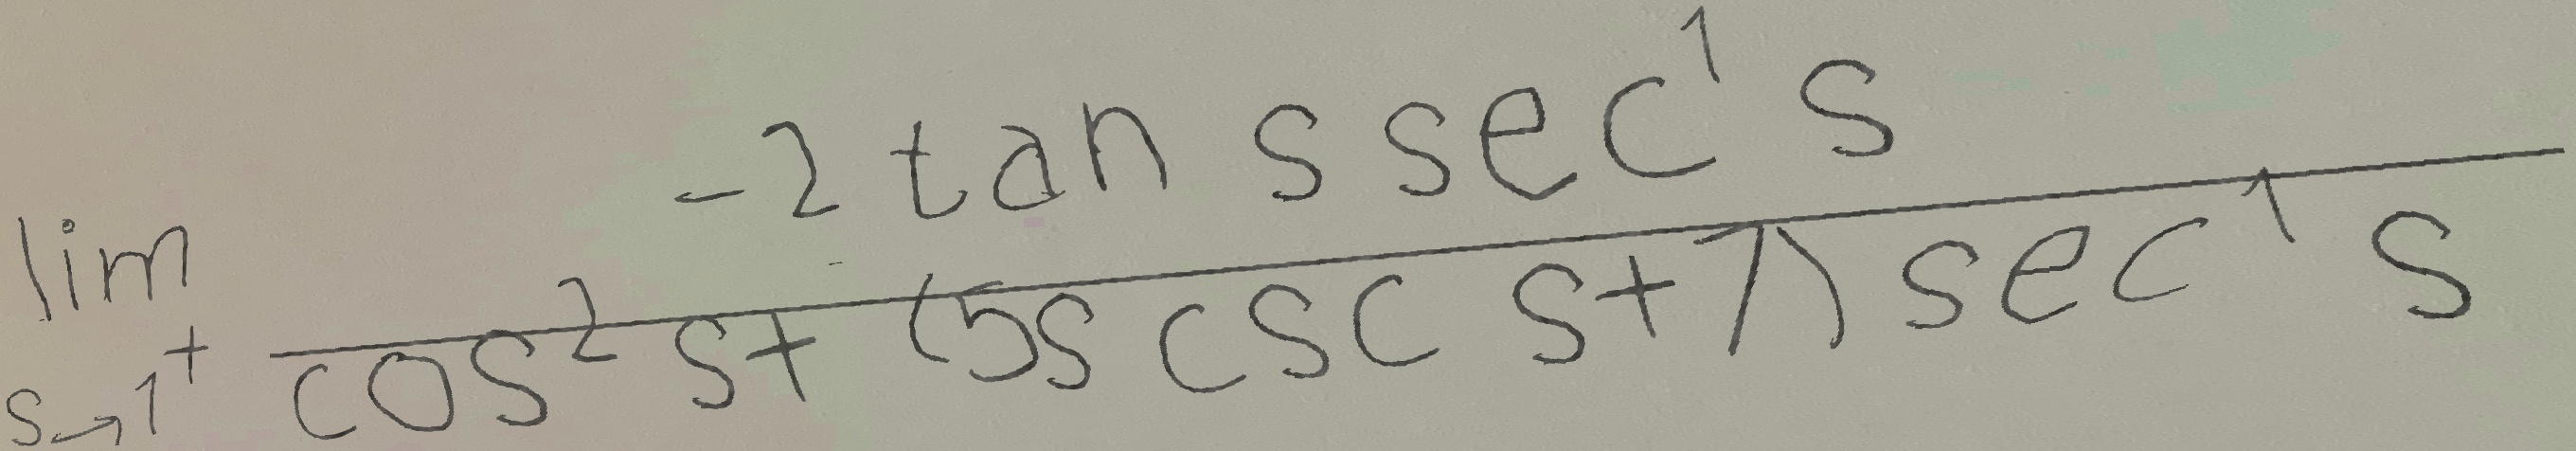 \lim_{s \to 1^+} \frac{-2 \tan s \sec^1 s}{\cos^2 s + (5s \csc s + 7) \sec^1 s}